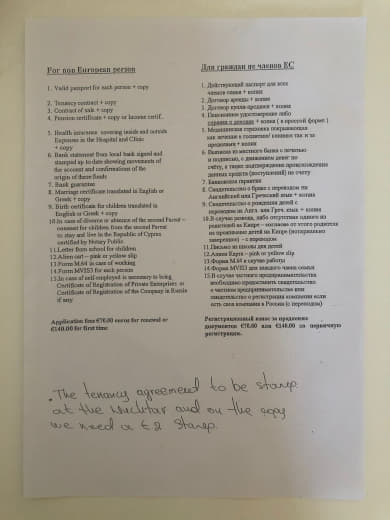 For non European person
1. Valid passport for each person + copy
2. Tenancy contract + copy
3. Contract of sale + copy
4. Pension certificate + copy or income certif..
5. Health insurance covering inside and outside
Expenses in the Hospital and Clinic
+ copy
6. Bank statement from local bank signed and
stamped up to date showing movements of
the account and confirmations of the
origin of these funds
7. Bank guarantee
8. Marriage certificate translated in English or
Greek + copy
9. Birth certificate for children translated in
English or Greek + copy
10.In case of divorce or absence of the second Parent –
consent for children from the second Parent
to stay and live in the Republic of Cyprus
certified by Notary Public
11.Letter from school for children
12.Alien cart – pink or yellow slip
13.Form M.64 in case of working
14.Form MVIS3 for each person
15.In case of self-employed is necessary to bring
Certificate of Registration of Private Enterprises, or
Certificate of Registration of the Company in Russia
if any
Application fine €70.00 euros for renewal or
€140.00 for first time
Для граждан не членов ЕС
1. Действующий паспорт для всех
членов семьи + копия
2. Договор аренды + копия
3. Договор купли-продажи + копия
4. Пенсионное удостоверение либо
справка о доходах + копия
5. Медицинская страховка покрывающая
как лечение в госпитале/ клинике так и за
пределами + копия
6. Выписка из местного банка с печатью
и подписью, с движением денег по
счёту, а также подтверждения происхождения
данных средств (поступлений) на счету
7. Банковская гарантия
8. Свидетельство о браке с переводом на
Английский или Греческий язык + копия
9. Свидетельство о рождении детей с
переводом на Англ. или Греч. язык + копия
10.В случае развода, либо отсутствия одного из
родителей на Кипре – согласие от этого родителя
на проживание детей на Кипре (нотариально
заверенного) – с переводом
11.Письмо из школы для детей
12.Алиен Карта – pink or yellow slip
13.Форма M.64 в случае работы
14.Форма MVIS3 для каждого члена семьи
15.В случае частного предпринимательства
необходимо предоставить свидетельство
о частном предпринимательстве или
свидетельство о регистрации компании если
есть своя компания в России (с переводом)
Регистрационный взнос за продление
документов €70.00 или €140.00 за первичную
регистрацию.
. The tenancy agreement to be stamp
at the Muchtar and on the copy
we need a € 2 stamp.